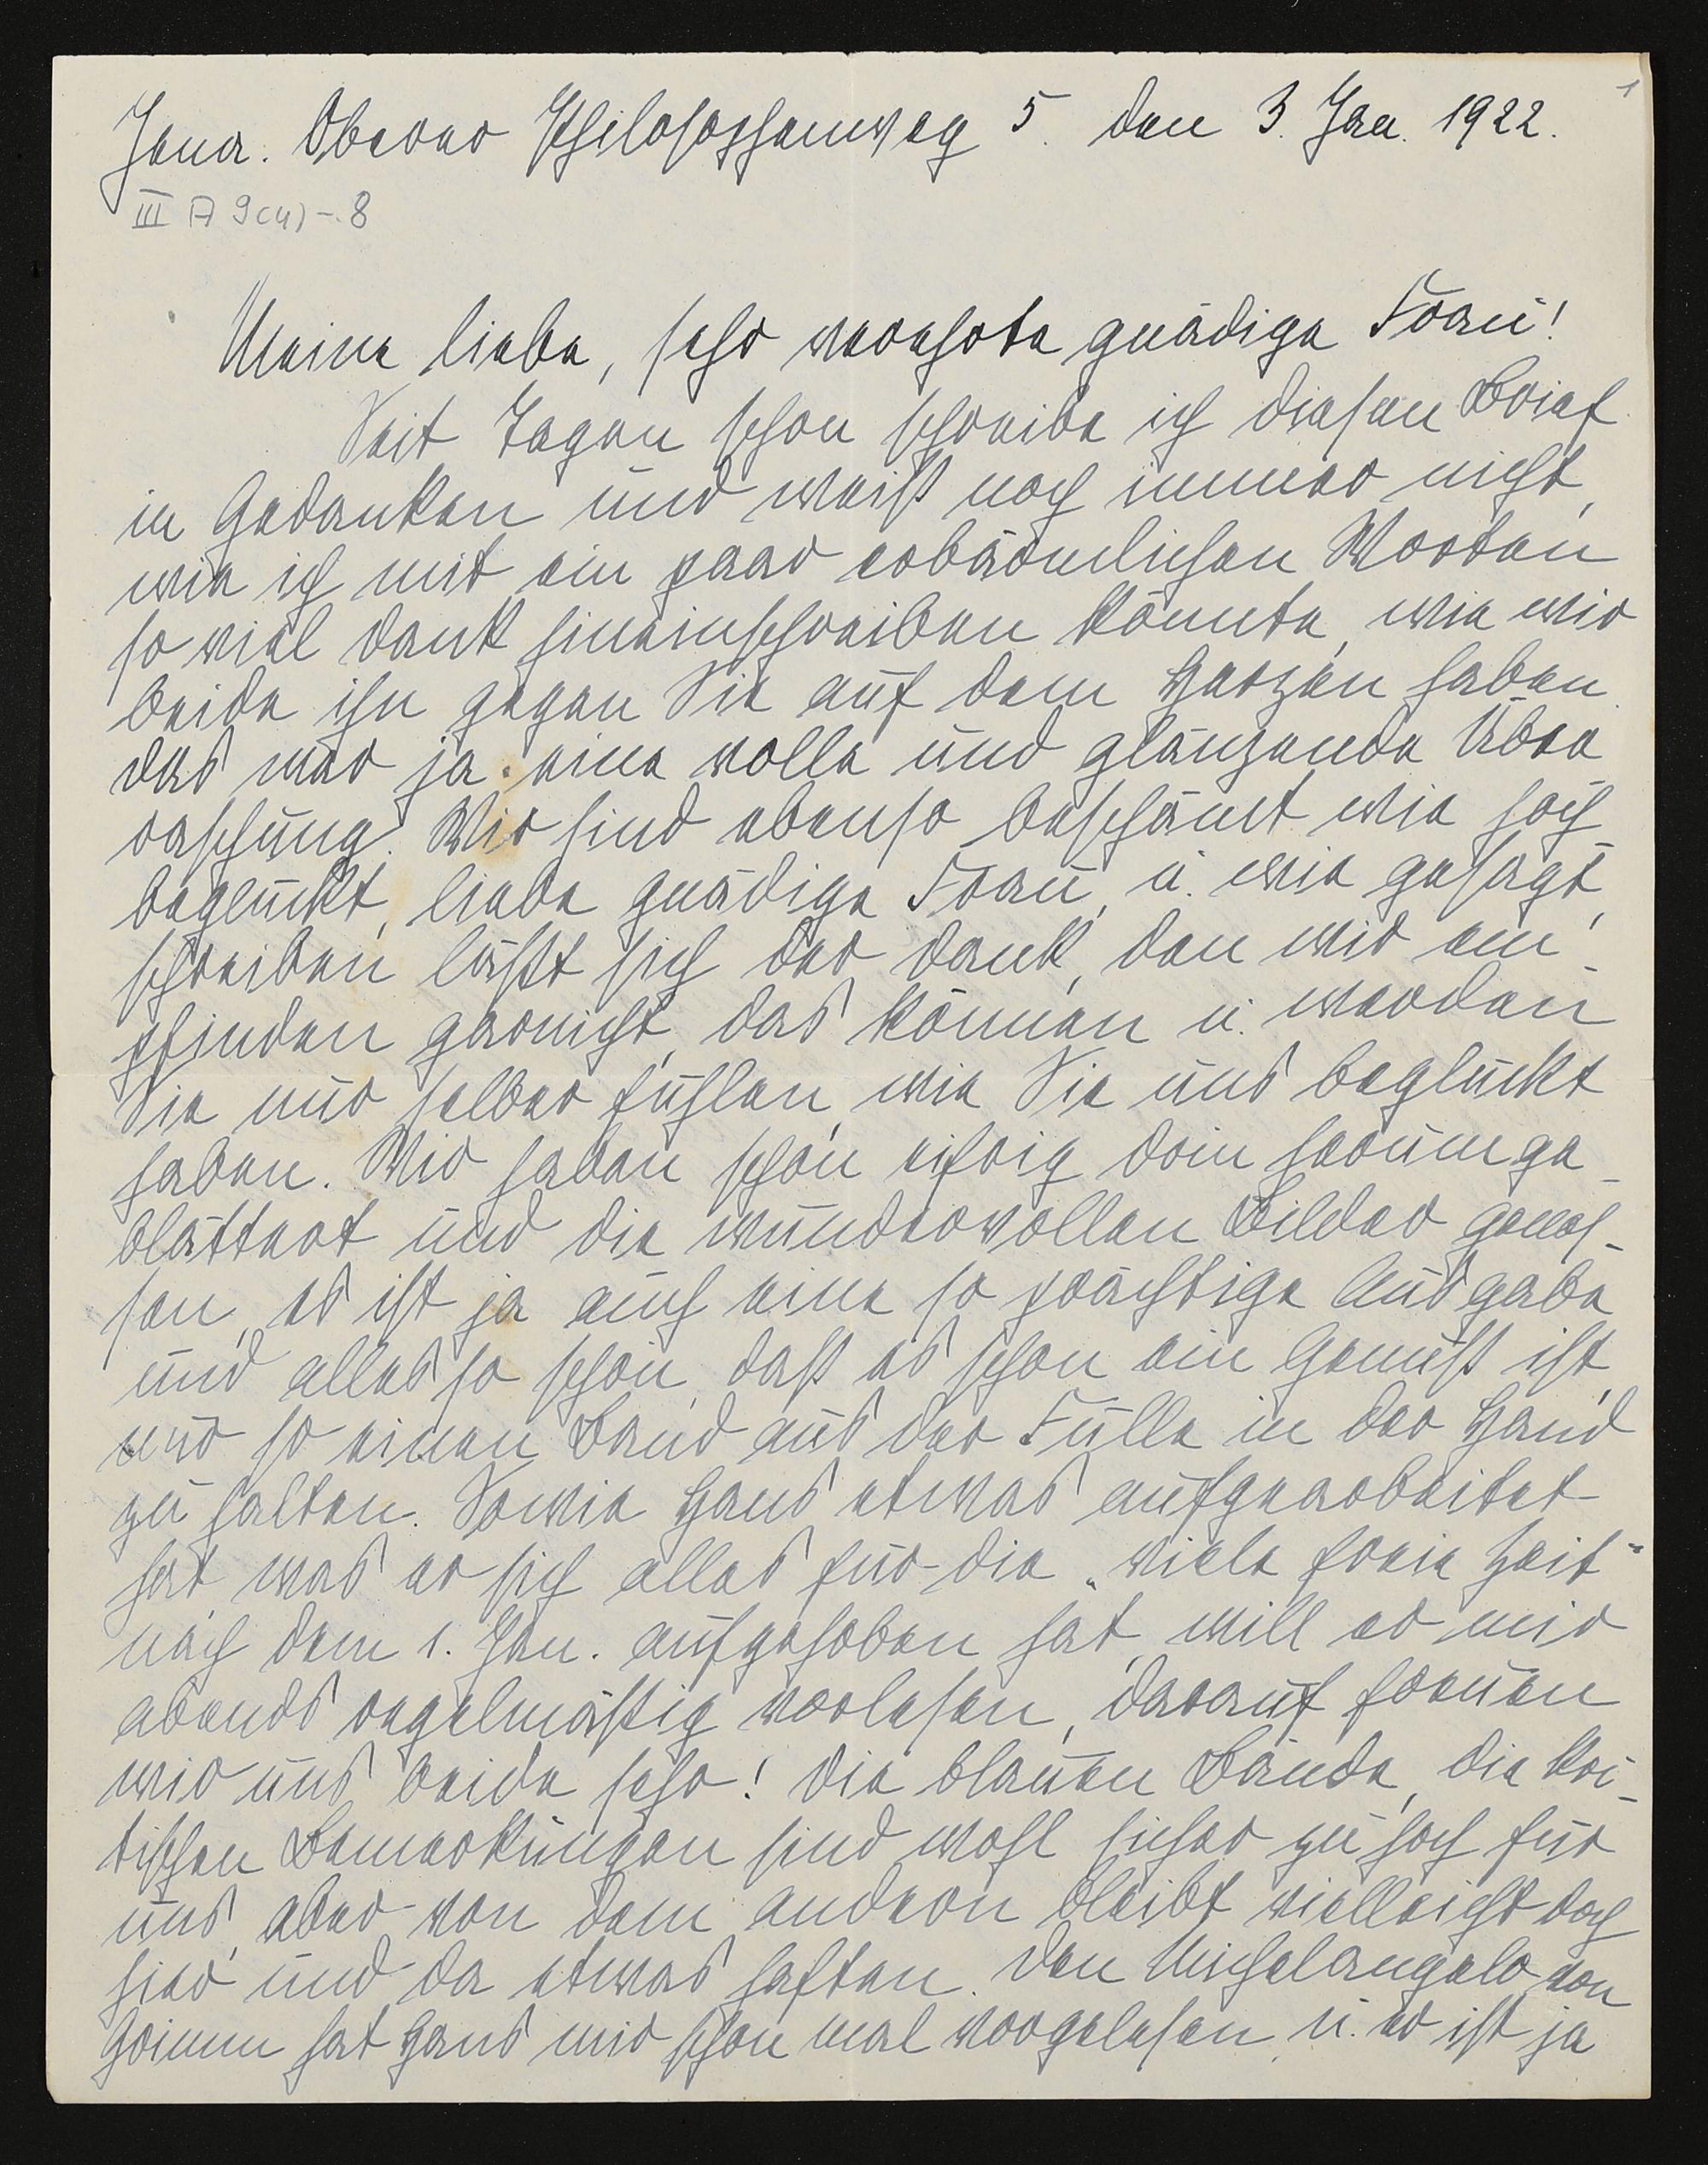 1
Jena. Oberer Philosophenweg 5. den 3. Jan. 1922.
III A 9(4)-8
Meine liebe, sehr verehrte gnädige Frau!
Seit Tagen schon schreibe ich diesen Brief
in Gedanken und weiß noch immer nicht,
wie ich mit ein paar erbärmlichen Worten
so viel Dank hineinschreiben könnte, wie wir
beide ihn gegen Sie auf dem Herzen haben.
Das war ja eine volle und glänzende Über
raschung. Wir sind ebenso beschämt wie hoch
beglückt, liebe gnädige Frau, u. wie gesagt,
schreiben läßt sich der Dank, den wir em-
pfinden garnicht, das können u. werden
Sie nur selber fühlen, wie Sie uns beglückt
haben. Wir haben schon eifrig drin herumge-
blättert und die wundervollen Bilder genos-
sen, es ist ja auch eine so prächtige Ausgabe
und alles so schön, daß es schon ein Genuß ist,
nur so einen Band aus der Fülle in der Hand
zu halten. Sowie Hans etwas aufgearbeitet
hat, was er sich alles für die „viele freie Zeit"
nach dem 1. Jan. aufgehoben hat, will er mir
abends regelmäßig vorlesen, darauf freuen
wir uns beide sehr! Die blauen Bände, die kri-
tischen Bemerkungen sind wohl sicher zu hoch für
uns, aber von dem andern bleibt vielleicht doch
hier und da etwas haften. Den Michelangelo von
Grimm hat Hans mir schon mal vorgelesen, u. er ist ja